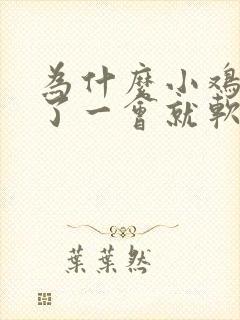 为什麼小鸡
了一會就軟
葉葉然